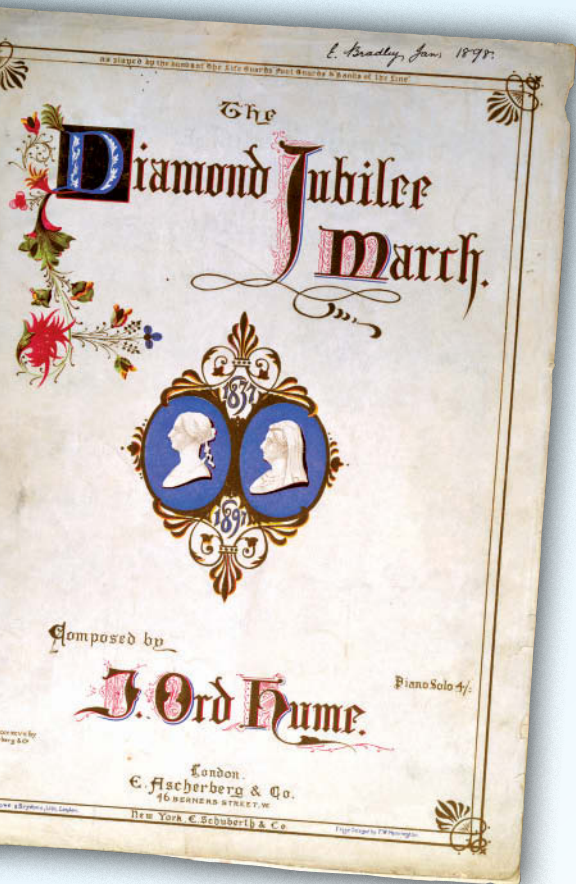 E. Bradley, Jan, 1898.
as played by the bands of the Life Guards Foot Guards & Bands of the Line
The
Diamond Jubilee
March.
1837
1897
Composed by
J. Ord Hume.
Piano Solo 4/-
berg & Co
London.
E. Ascherberg & Co.
46 BERNERS STREET, W
London
New York, E. Schuberth & Co